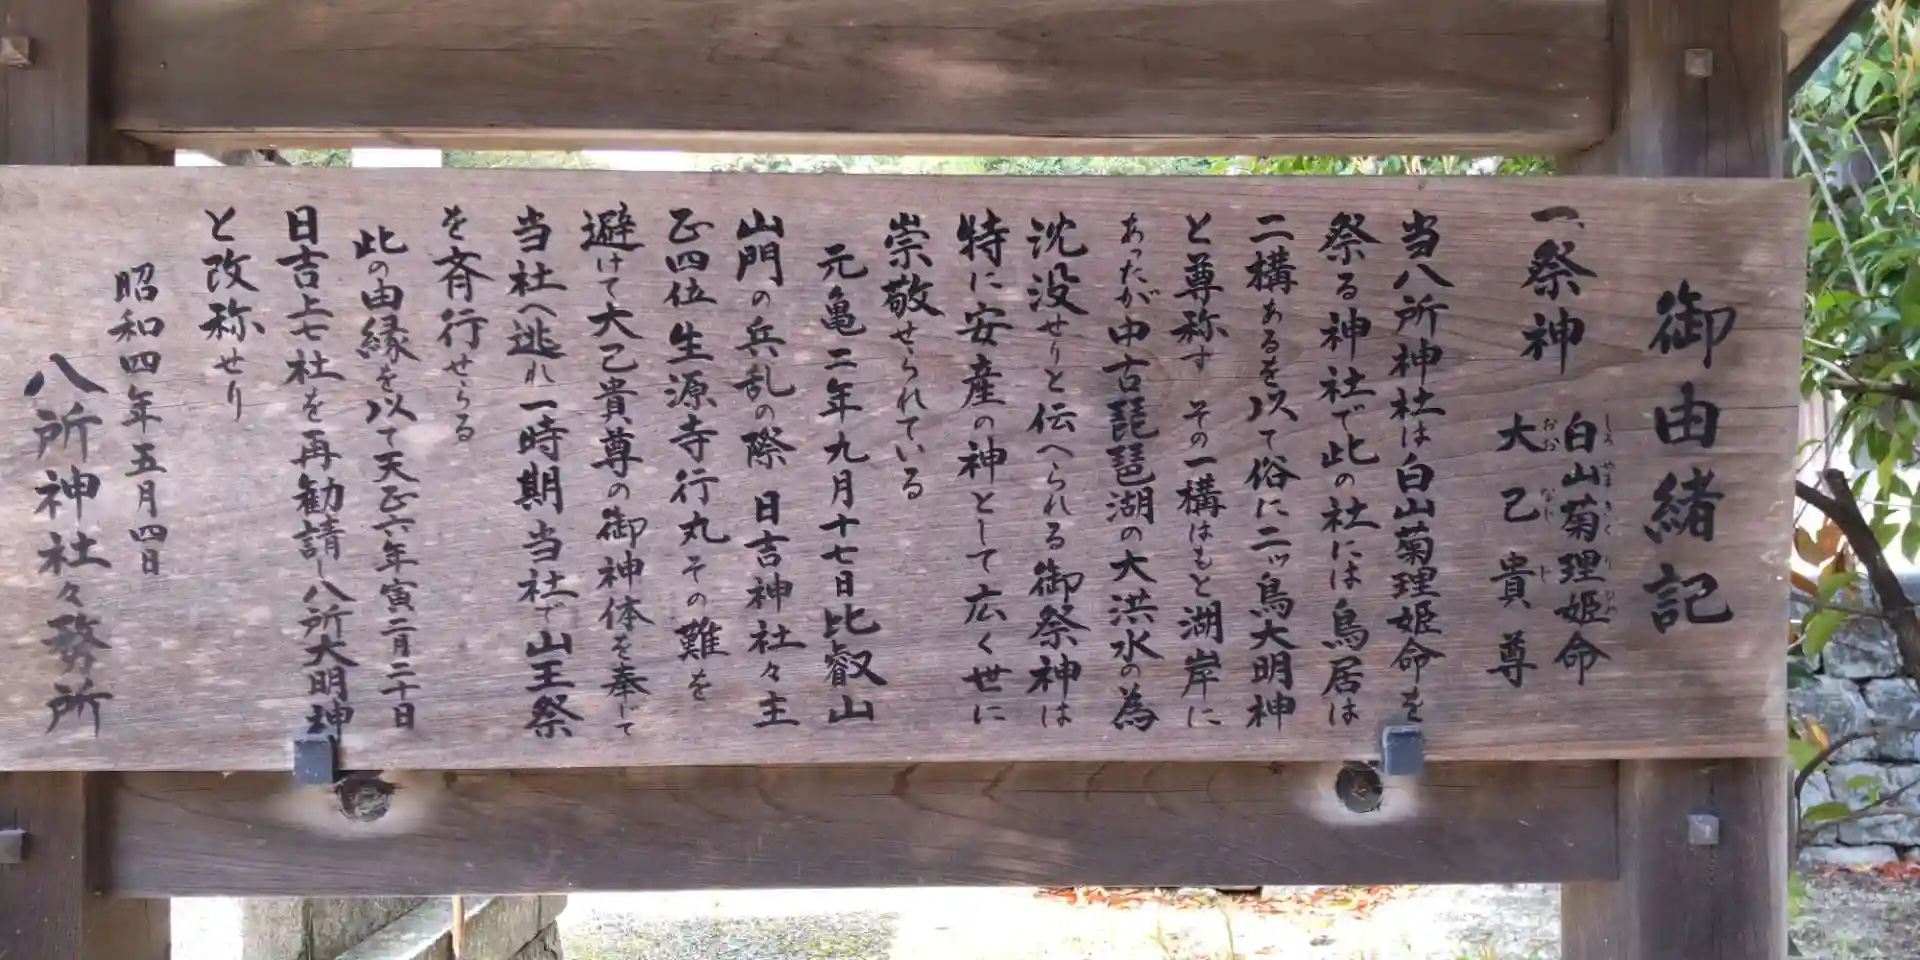 御由緒記
一、祭神
白山菊理姫命
しろやまきくりひめ
大己貴尊
おおなむじ
当八所神社は白山菊理姫命を
祭る神社で此の社には鳥居は
二構あるを以て俗に二ッ鳥大明神
と尊称す その一構はもと湖岸に
あったが中古琵琶湖の大洪水の為
沈没せりと伝へられる御祭神は
特に安産の神として広く世に
崇敬せられている
元亀二年九月十七日比叡山
山門の兵乱の際 日吉神社々主
正四位生源寺行丸その難を
避けて大己貴尊の御神体を奉じて
当社へ逃れ一時期当社で山王祭
を斉行せらる
此の由縁を以て天正六年寅二月二十日
日吉上七社を再勧請し八所大明神
と改称せり
昭和四年五月四日
八所神社々務所